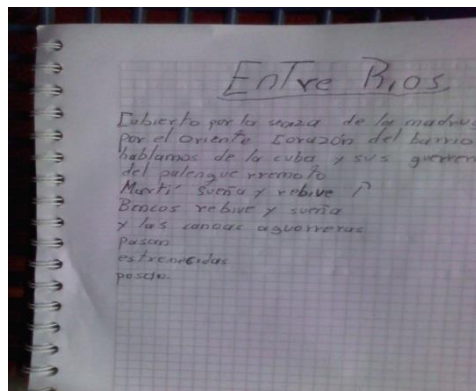 Entre Rios
Cubierto por la seaza de la madru
por el oriente Corazón del barrio
hablamos de la cuba y sus guerrer
del palengue rremoto
Martí sueña y rebive
Bencos rebive y sueña
y las canoas aguerreras
pasan
estremesidas
pasan